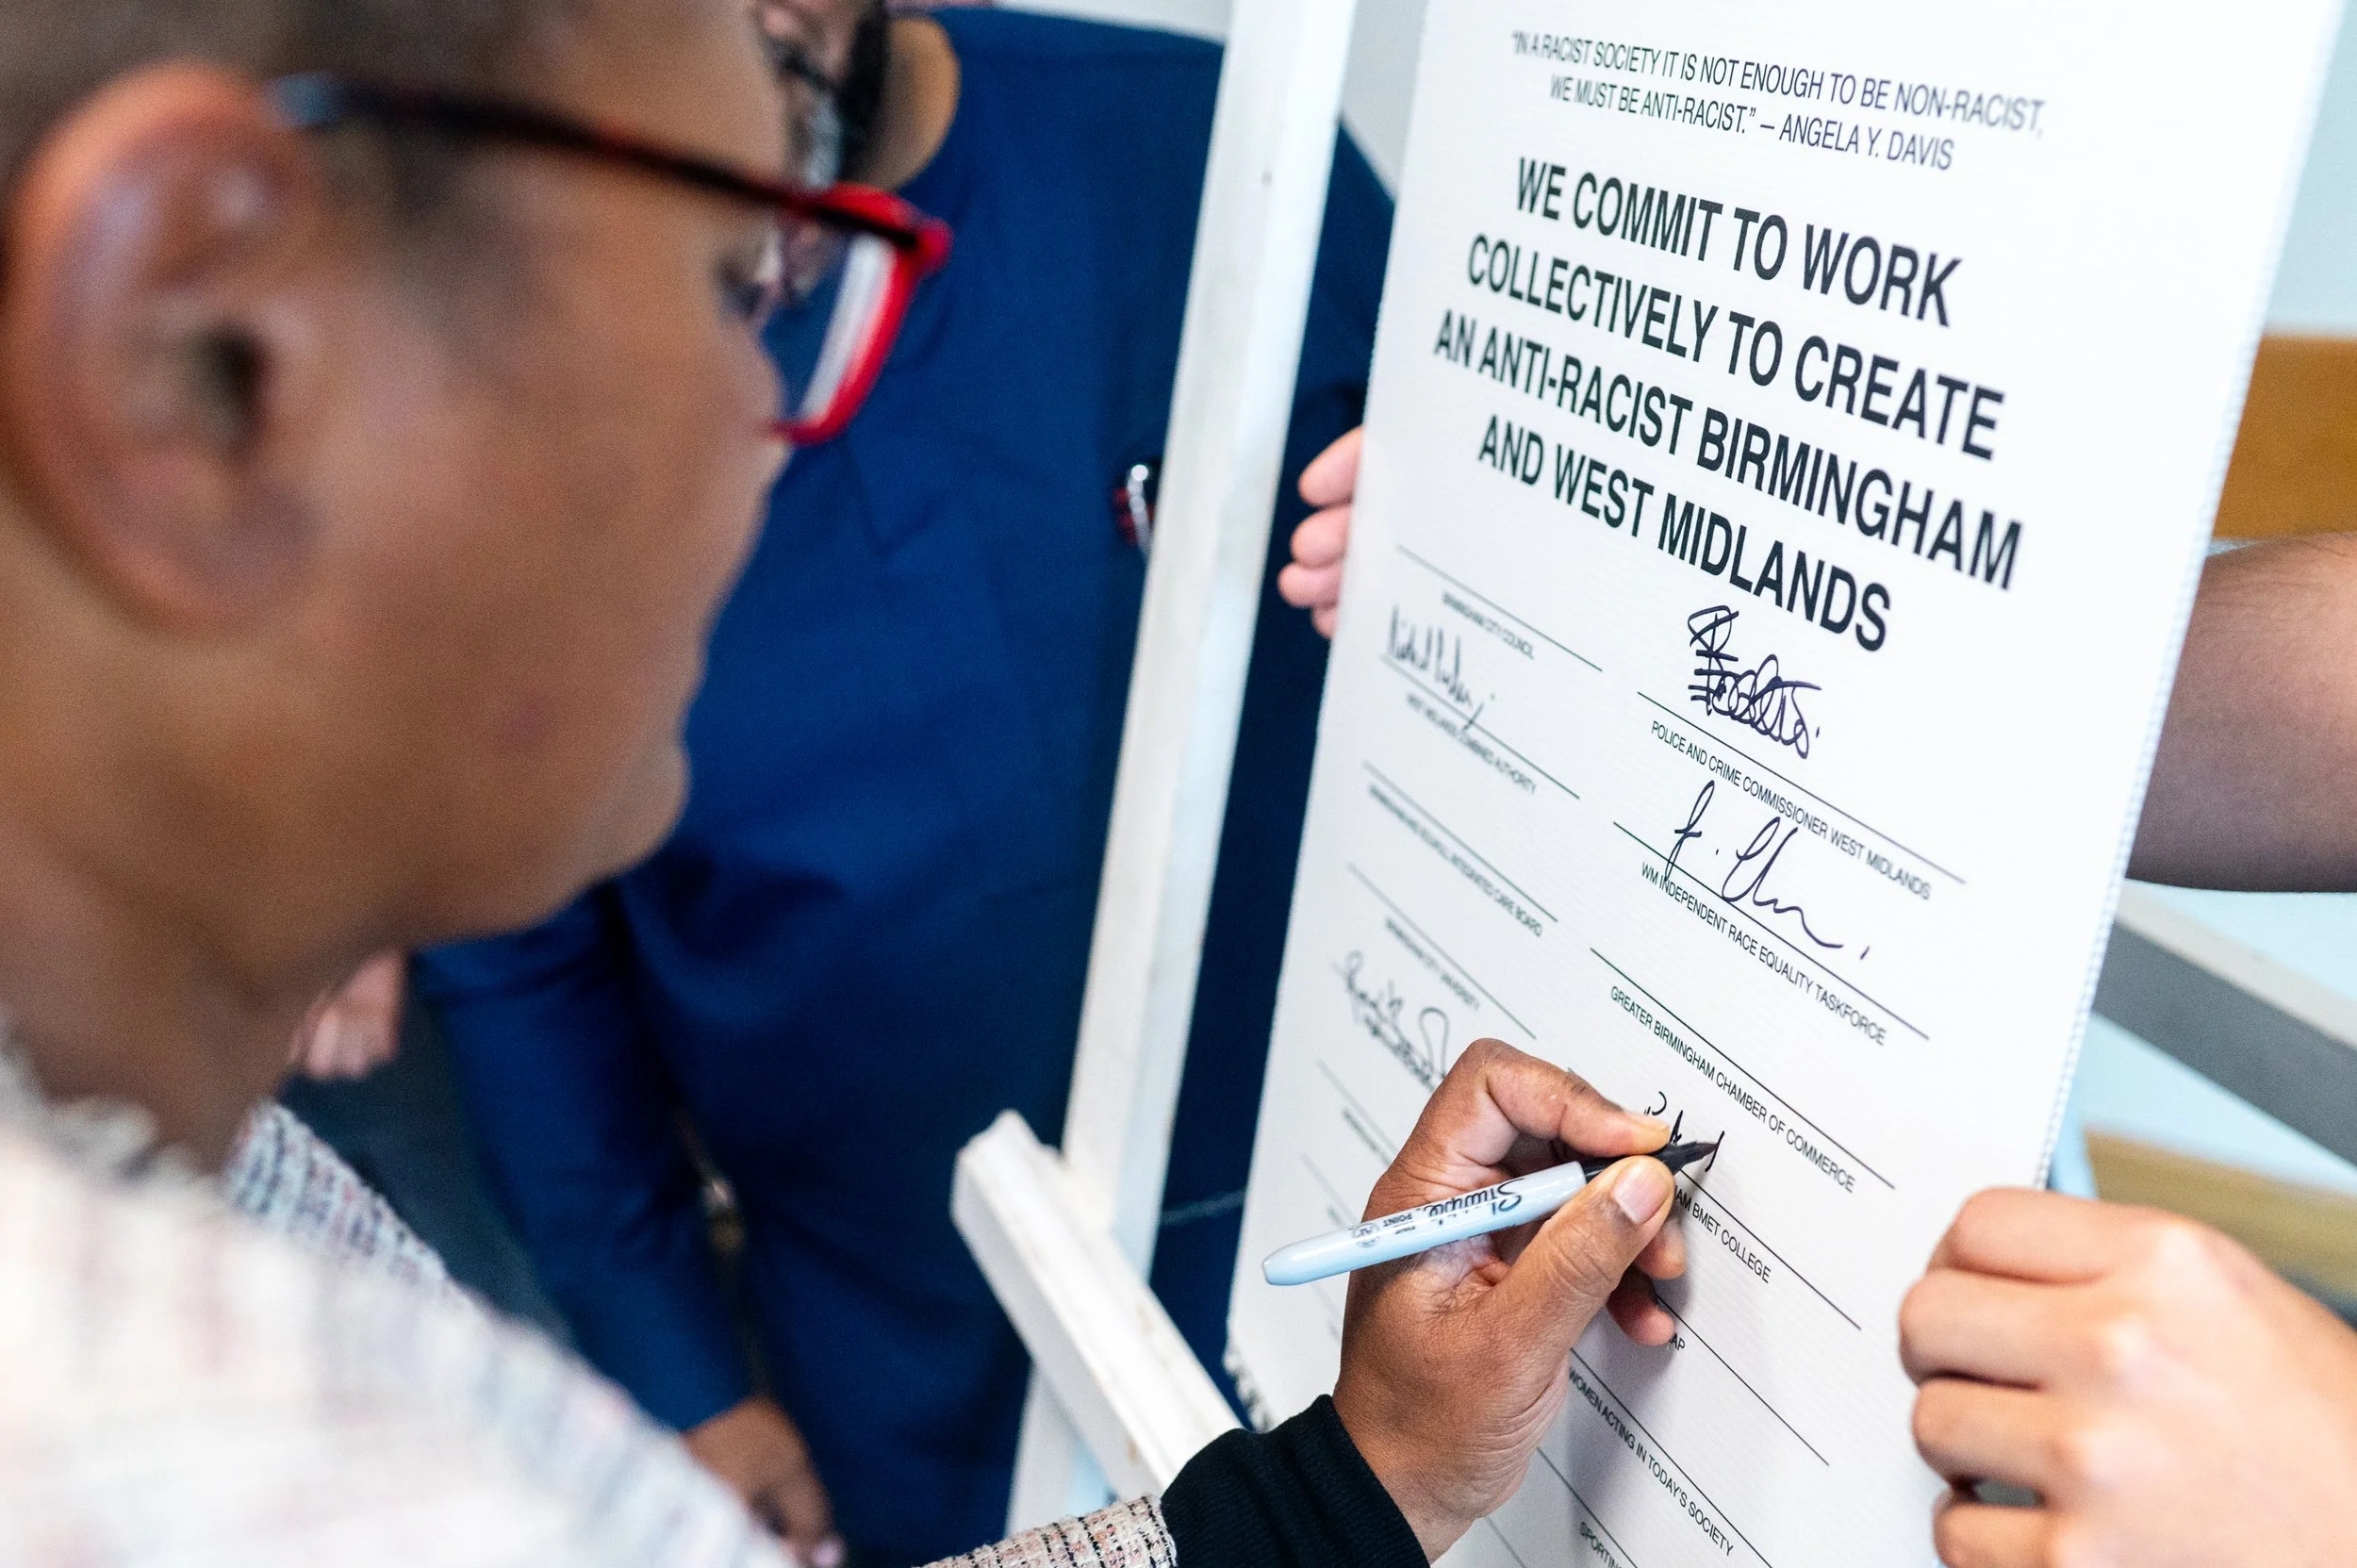 "IN A RACIST SOCIETY IT IS NOT ENOUGH TO BE NON-RACIST,
WE MUST BE ANTI-RACIST." – ANGELA Y. DAVIS
WE COMMIT TO WORK
COLLECTIVELY TO CREATE
AN ANTI-RACIST BIRMINGHAM
AND WEST MIDLANDS
BIRMINGHAM CITY COUNCIL
WEST MIDLANDS COMBINED AUTHORITY
BIRMINGHAM AND SOLIHULL INTEGRATED CARE BOARD
BIRMINGHAM CITY UNIVERSITY
POLICE AND CRIME COMMISSIONER WEST MIDLANDS
WM INDEPENDENT RACE EQUALITY TASKFORCE
GREATER BIRMINGHAM CHAMBER OF COMMERCE
AM BMET COLLEGE
AP
WOMEN ACTING IN TODAY'S SOCIETY
SPORTIN
Sharpie
POINT